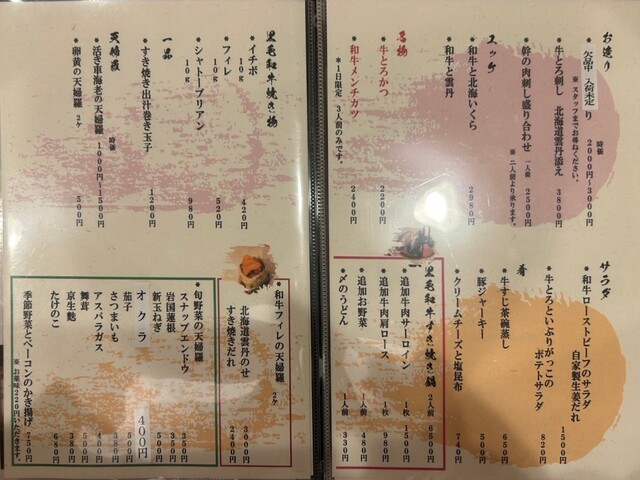 お造り
欠品 入荷未定 り 時価 2000円〜3000円
※スタッフまでお尋ねください。
牛とろ刺し 北海道雲丹添え 3800円
幹の肉刺し盛り合わせ 一人前 2500円
※二人前より承ります。
ユッケ
和牛と北海いくら 2980円
和牛と雲丹
名物
牛とろかつ 2200円
和牛メンチカツ 2400円
*1日限定 3人前のみです。
サラダ
和牛ローストビーフのサラダ
自家製生姜だれ 1500円
牛とろといぶりがっこの
ポテトサラダ 820円
肴
牛すじ茶碗蒸し 650円
豚ジャーキー 500円
クリームチーズと塩昆布 740円
黒毛和牛すき焼き鍋 2人前 6500円
追加牛肉サーロイン 1枚 1500円
追加牛肉肩ロース 1枚 980円
追加お野菜 1人前 480円
〆のうどん 1人前 330円
黒毛和牛焼き物
イチボ 10g 420円
フィレ 10g 520円
シャトーブリアン 10g 980円
一品
すき焼き出汁巻き玉子 1200円
天婦羅
活き車海老の天婦羅 時価 1000円〜1500円
卵黄の天婦羅 2ケ 500円
和牛フィレの天婦羅 2ケ
北海道雲丹のせ 3000円
すき焼きだれ 2400円
旬野菜の天婦羅
スナップエンドウ 350円
岩国蓮根 350円
新玉ねぎ 500円
オクラ 400円
茄子 350円
さつまいも 380円
アスパラガス 500円
舞茸 480円
京生麩 380円
たけのこ 680円
季節野菜とベーコンのかき揚げ 750円
※お薬味220円いただきます。